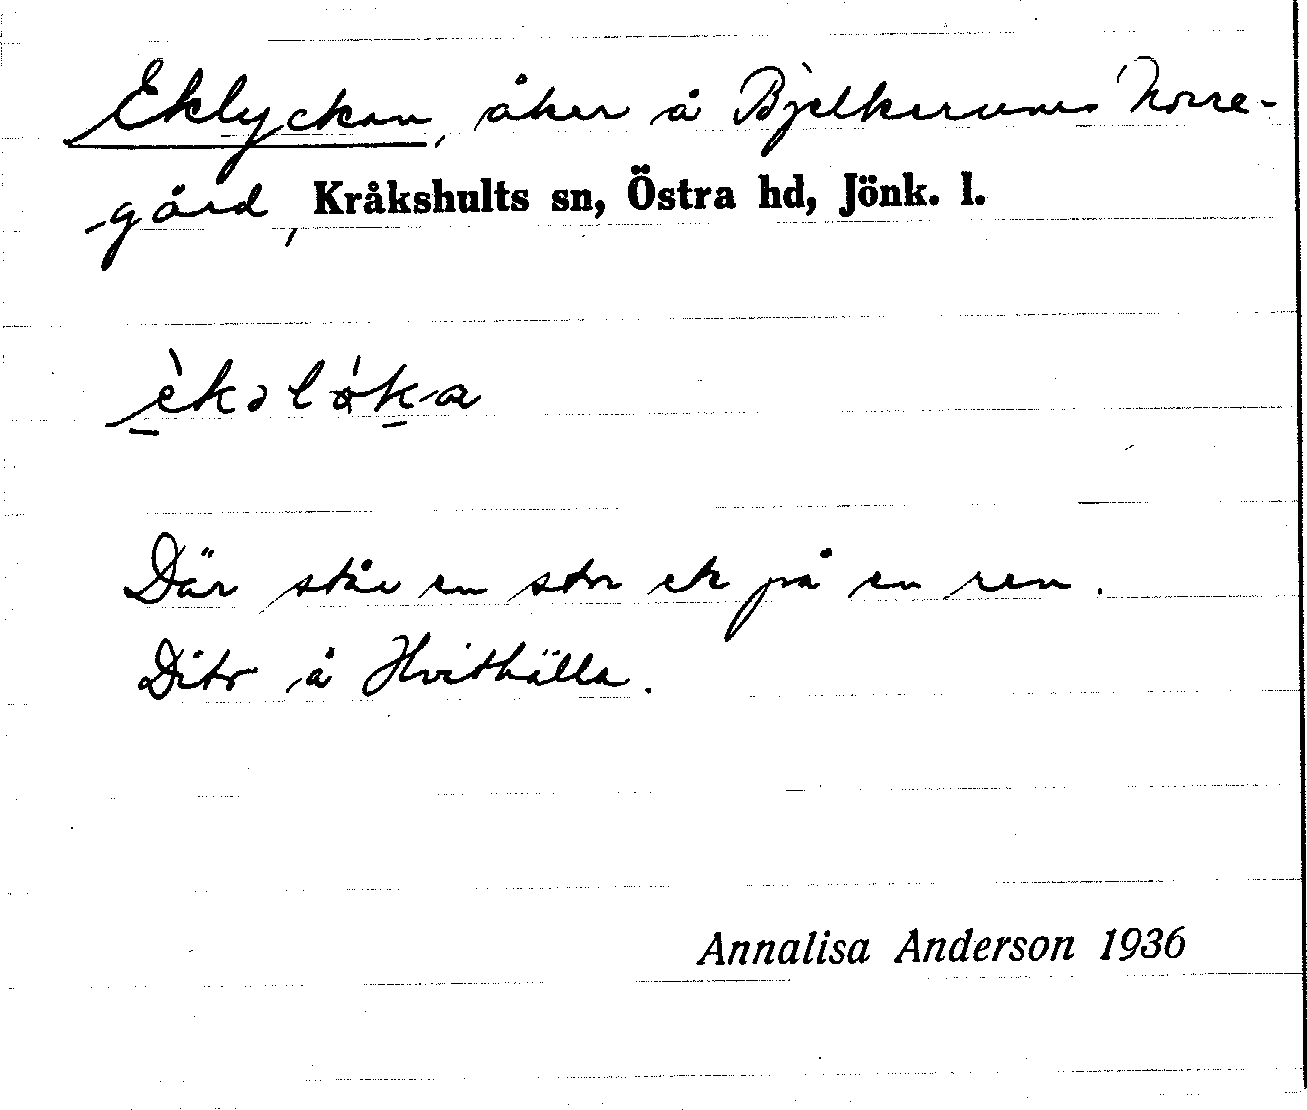 Eklyckan, åker å Bjelkeruums Norre-
gård, Kråkshults sn, Östra hd, Jönk. l.
Där står en stor ek på en ren.
Dito å Hvithälla.
Annalisa Anderson 1936